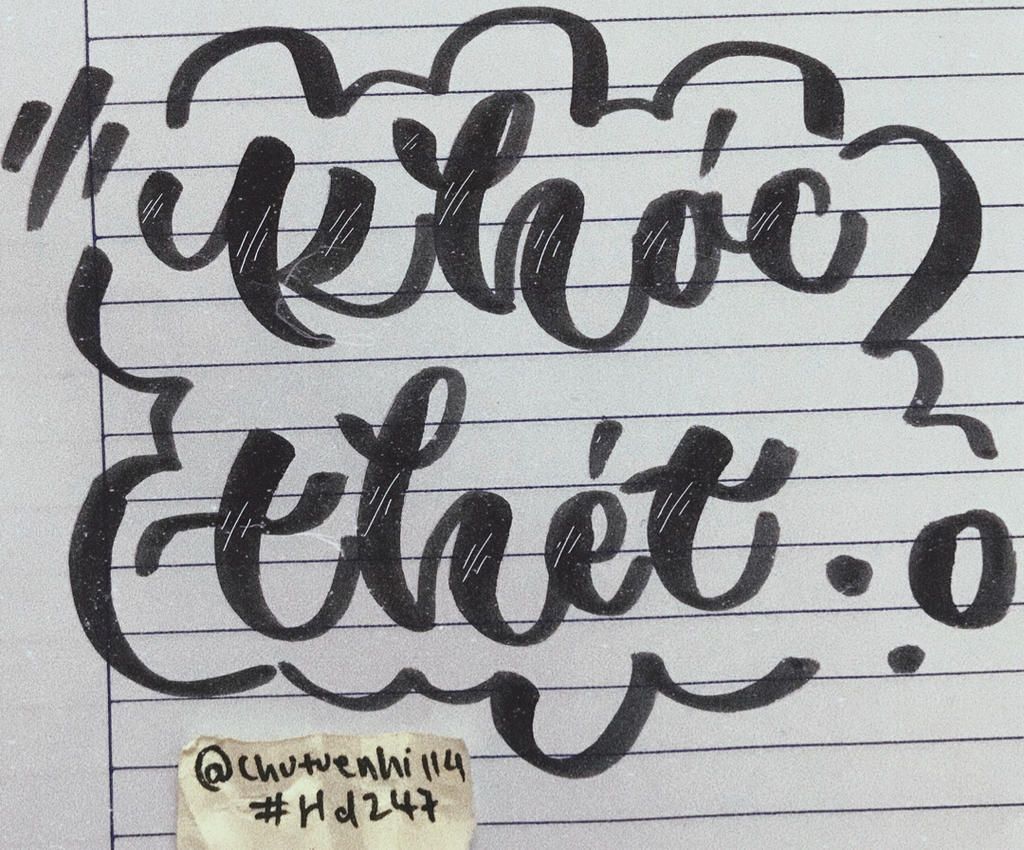 khóc
thét
@chutuenhi114
#Hd247